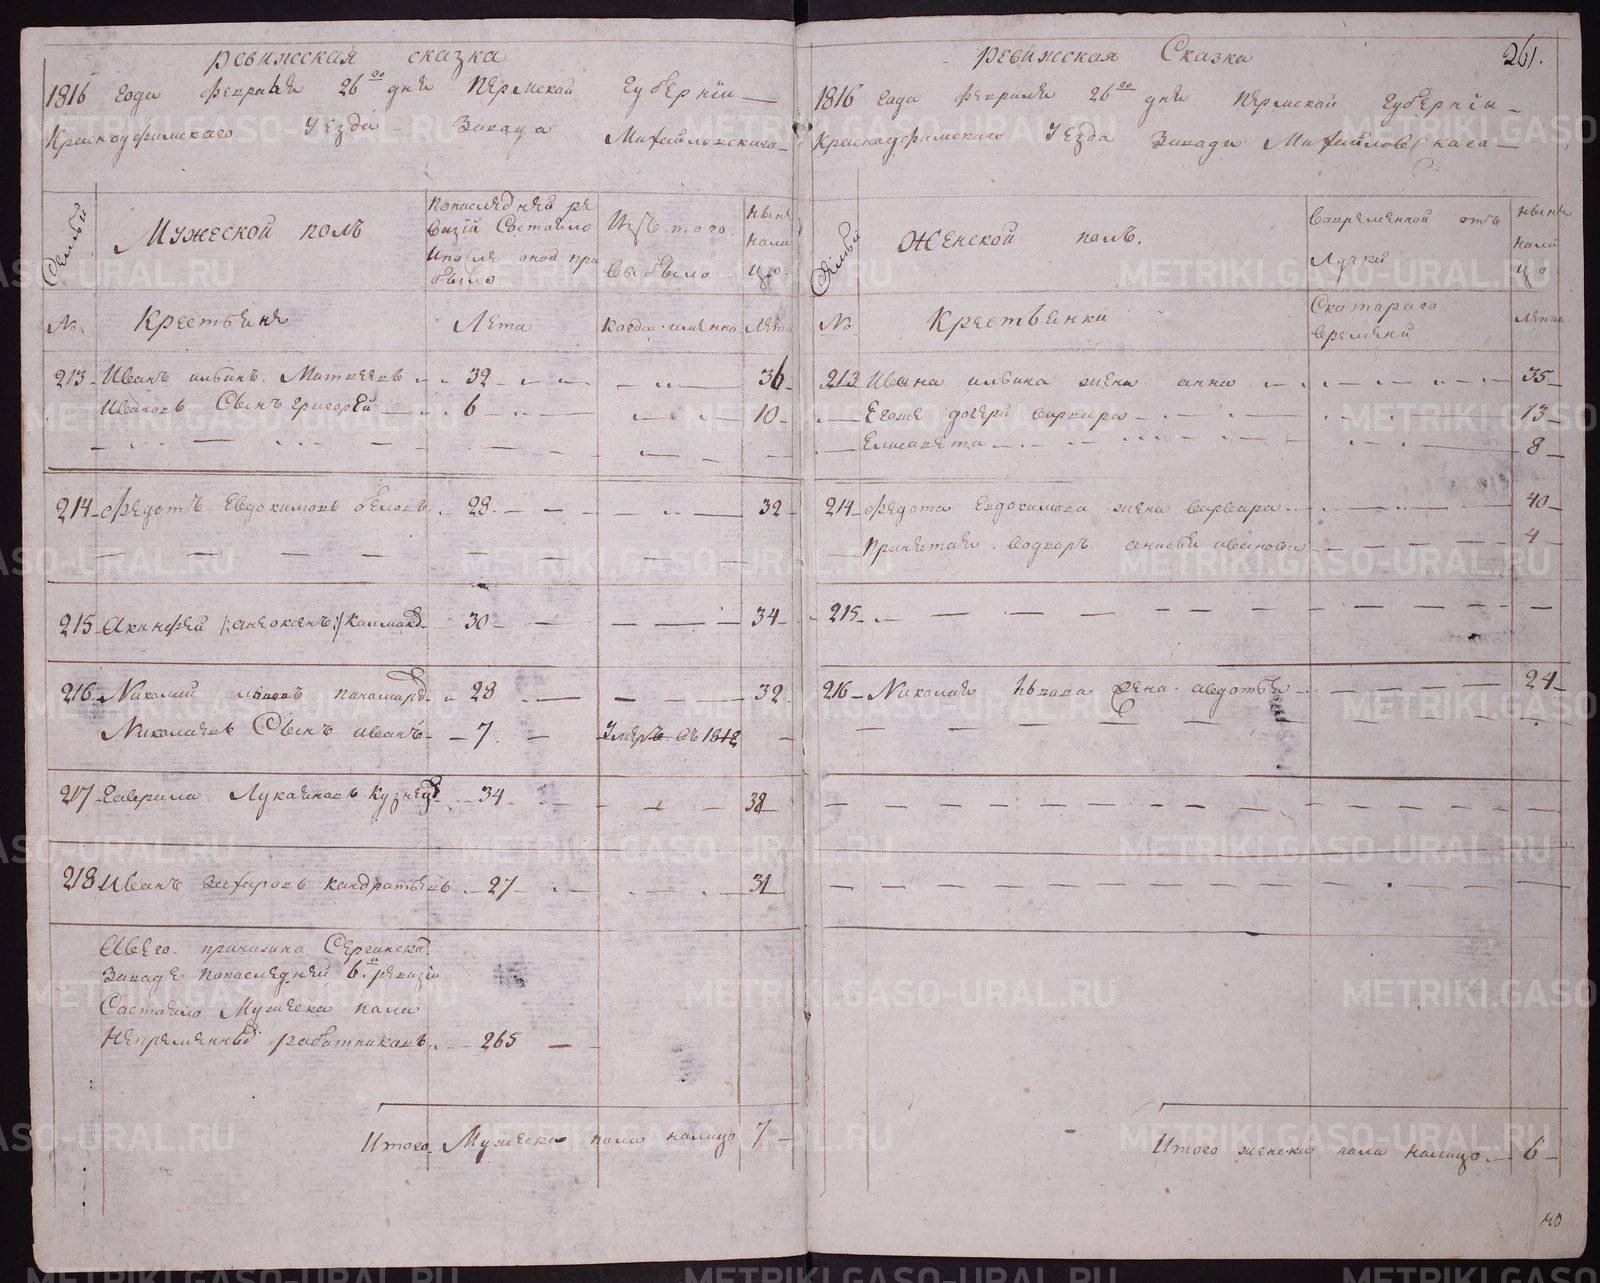 Ревижская сказка
1816 Года февраля 26го дня Пермской Губернии
Красноуфимскаго Уезда Завода Михайловскаго
Семьи
Мужеской полъ
Попоследней ре
визiи Состояло
ипосля оной при
было
Изъ того
выбыло
ныне
нали
цо
№
Крестьяня
Лета
Когда имянно
Лета
213 Иванъ ильинъ Матвеевъ 32 36
Ивановъ Сынъ григорей 6 10
214 Федотъ Евдокимовъ беловъ 28 32
215 Акинфей 30 34
216 Николай львовъ понамаре 28 32
Николаевъ Сынъ иванъ 7 Умеръ въ 1812
217 Гаврила Лукояновъ Кузнец 34 38
218 Иванъ захаровъ кандратьевъ 27 31
Авсего Сергинска
Заводе попоследней 6й ревизiи
Состояло Мужеска пола
Непременны работниковъ 265
Итого Мужеска пола налицо 7
Ревижская Сказка
261.
1816 Года февраля 26го дня Пермской Губернiи
Красноуфимскаго Уезда Завода Михайловскаго
Семьи
Женской полъ.
Вовременной отъ
лучки
ныне
нали
цо
№
Крестьянки
Скотораго
времяни
лета
213 Ивана ильина жена анна 35
Егоже дочери варвара 13
Елисавета 8
214 Федота Евдокимова жена варвара 40
анисья иванова 4
215
216 Николая львова жена авдотья 24
Итого женска пола налицо 6
40
METRIKI.GASO-URAL.RU